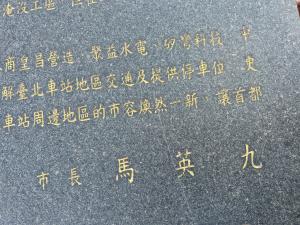 淹沒工區
商皇昌營造、繁益水電、矽譽科技、中
解臺北車站地區交通及提供停車位、東
車站周邊地區的市容煥然一新，讓首都
市長 馬英九